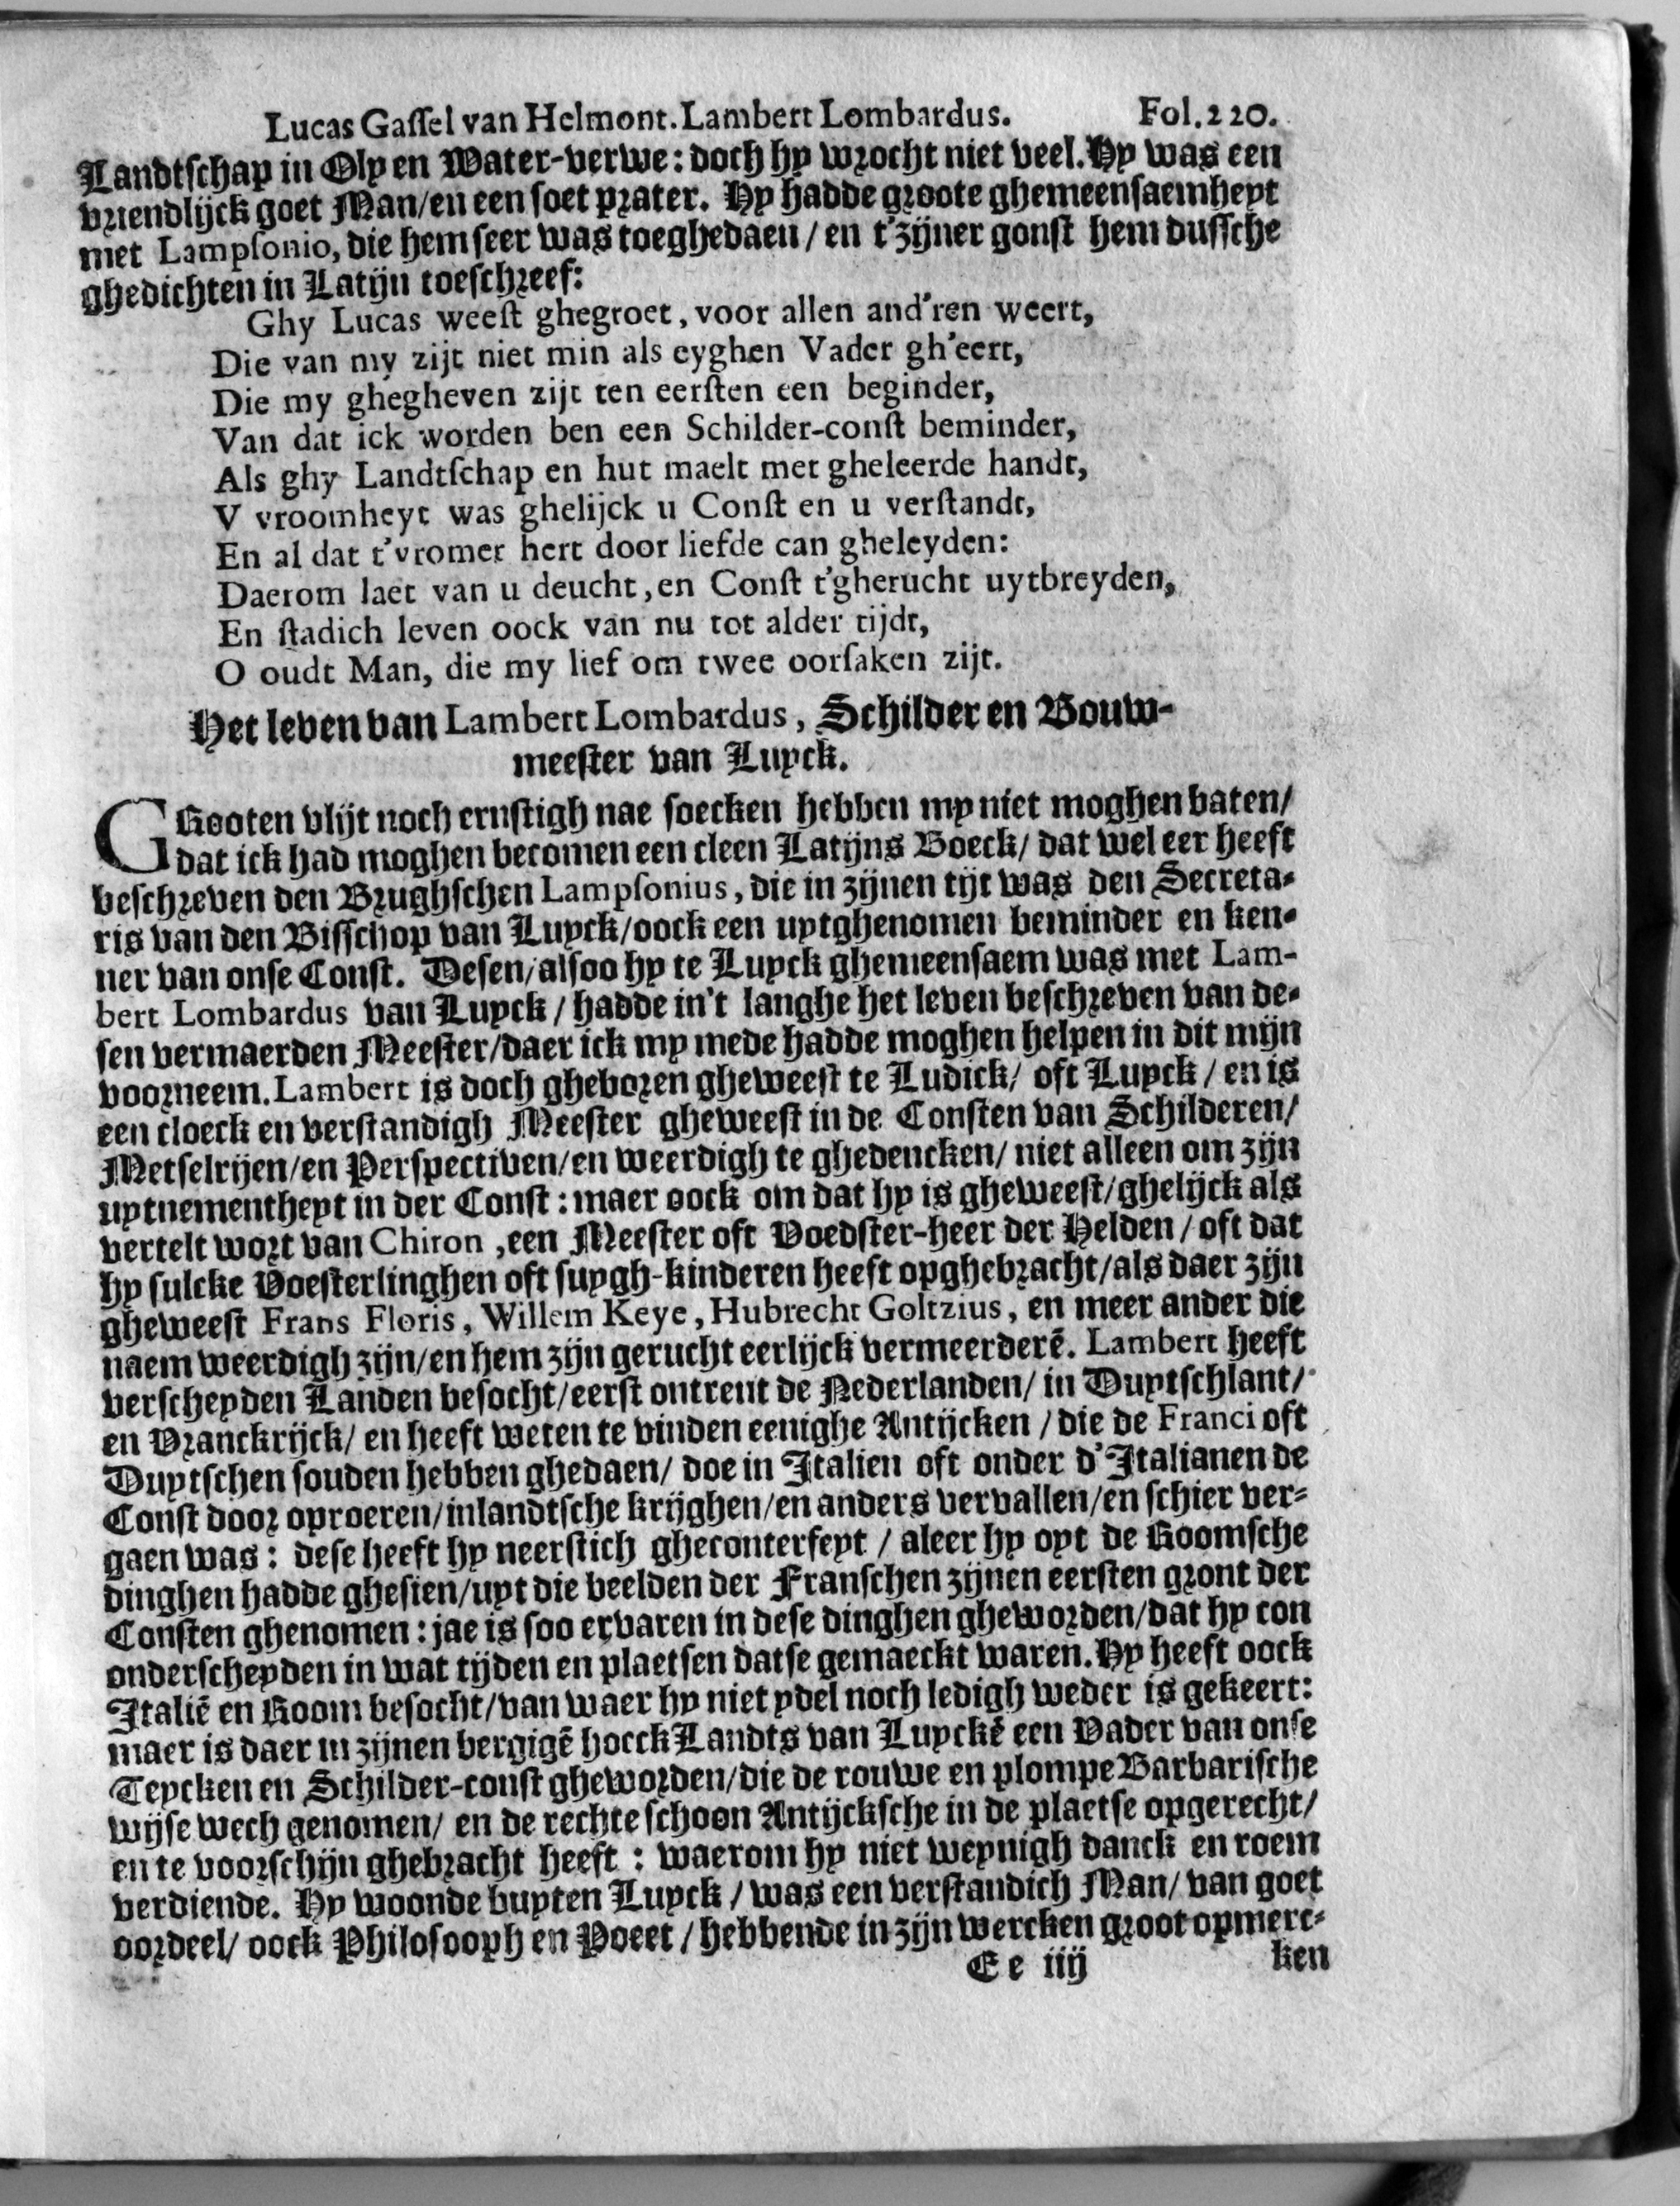 Lucas Gassel van Helmont. Lambert Lombardus. Fol. 220.
Landtschap in Oly en Water-verwe: doch hy wrocht niet veel. Hy was een
vriendlijck goet Man/ en een soet prater. Hy hadde groote ghemeensaemheyt
met Lampsonio, die hem seer was toeghedaen/ en t'zijner gonst hem dussche
ghedichten in Latijn toeschreef:
Ghy Lucas weest ghegroet, voor allen and'ren weert,
Die van my zijt niet min als eyghen Vader gh'eert,
Die my ghegheven zijt ten eersten een beginder,
Van dat ick worden ben een Schilder-const beminder,
Als ghy Landtschap en hut maelt met gheleerde handt,
V vroomheyt was ghelijck u Const en u verstandt,
En al dat t'vromer hert door liefde can gheleyden:
Daerom laet van u deucht, en Const t'gherucht uytbreyden,
En stadich leven oock van nu tot alder tijdt,
O oudt Man, die my lief om twee oorsaken zijt.
Het leven van Lambert Lombardus, Schilder en Bouw-
meester van Luyck.
GRooten vlijt noch ernstigh nae soecken hebben my niet moghen baten/
dat ick had moghen becomen een cleen Latijns Boeck/ dat wel eer heeft
beschreven den Brughschen Lampsonius, die in zijnen tijt was den Secreta-
ris van den Bisschop van Luyck/ oock een uytghenomen beminder en ken-
ner van onse Const. Desen/ alsoo hy te Luyck ghemeensaem was met Lam-
bert Lombardus van Luyck/ hadde in't langhe het leven beschreven van de-
sen vermaerden Meester/ daer ick my mede hadde moghen helpen in dit mijn
voorneem. Lambert is doch gheboren gheweest te Ludick/ oft Luyck/ en is
een cloeck en verstandigh Meester gheweest in de Consten van Schilderen/
Metselrijen/ en Perspectiven/ en weerdigh te ghedencken/ niet alleen om zijn
uytnementheyt in der Const: maer oock om dat hy is gheweest/ ghelijck als
vertelt wort van Chiron, een Meester oft Voedster-heer der Helden/ oft dat
hy sulcke Voesterlinghen oft suygh-kinderen heeft opghebracht/ als daer zijn
gheweest Frans Floris, Willem Keye, Hubrecht Goltzius, en meer ander die
naem weerdigh zijn/ en hem zijn gerucht eerlijck vermeerderē. Lambert heeft
verscheyden Landen besocht/ eerst ontrent de Nederlanden/ in Duytschlant/
en Vranckrijck/ en heeft weten te vinden eenighe Antijcken/ die de Franci oft
Duytschen souden hebben ghedaen/ doe in Italien oft onder d'Italianen de
Const door oproeren/ inlandtsche krijghen/ en anders vervallen/ en schier ver-
gaen was: dese heeft hy neerstich gheconterfeyt/ aleer hy oyt de Roomsche
dinghen hadde ghesien/ uyt die beelden der Franschen zijnen eersten gront der
Consten ghenomen: jae is soo ervaren in dese dinghen gheworden/ dat hy con
onderscheyden in wat tijden en plaetsen datse gemaeckt waren. Hy heeft oock
Italiē en Room besocht/ van waer hy niet ydel noch ledigh weder is gekeert:
maer is daer in zijnen bergigē hoeck Landts van Luyckē een Vader van onse
Teycken en Schilder-const gheworden/ die de rouwe en plompe Barbarische
wijse wech genomen/ en de rechte schoon Antijcksche in de plaetse opgerecht/
en te voorschijn ghebracht heeft: waerom hy niet weynigh danck en roem
verdiende. Hy woonde buyten Luyck/ was een verstandich Man/ van goet
oordeel/ oock Philosooph en Poeet/ hebbende in zijn wercken groot opmerc-
Ee iiij ken